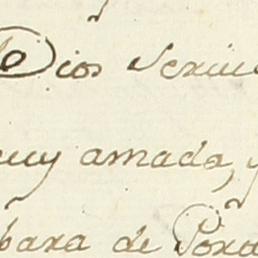 Dios Servi
muy amada, y
bara de Pora